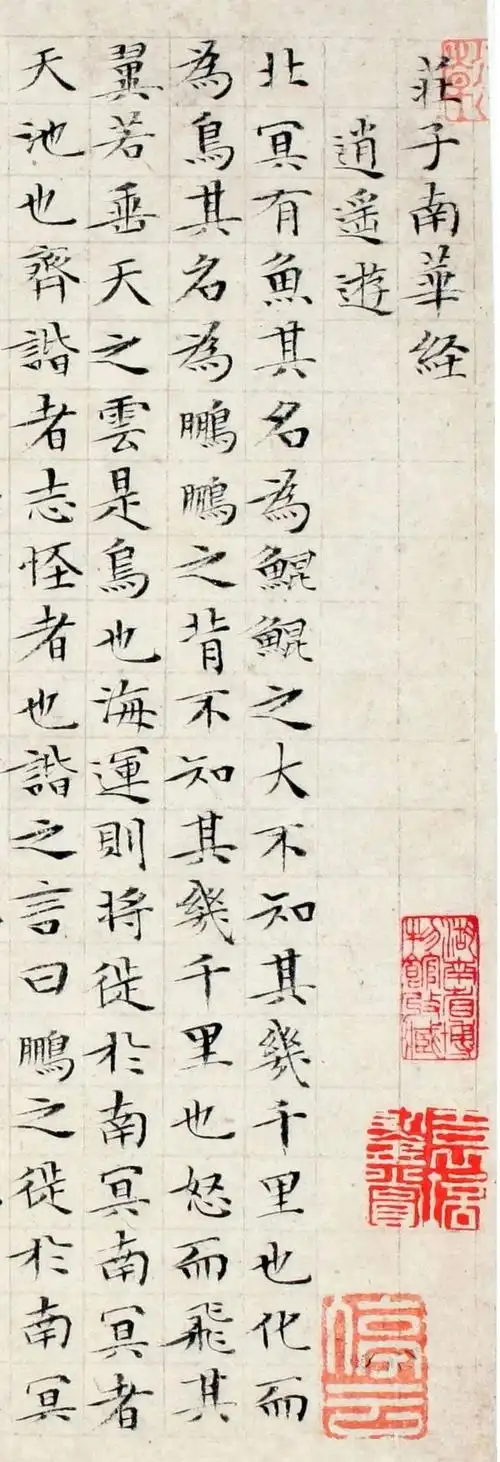 莊子南華経
逍遙遊
北冥有魚其名為鯤鯤之大不知其幾千里也化而
為鳥其名為鵬鵬之背不知其幾千里也怒而飛其
翼若垂天之雲是鳥也海運則將徙於南冥南冥者
天池也齊諧者志怪者也諧之言曰鵬之徙於南冥
湖南省博物館收藏
停云